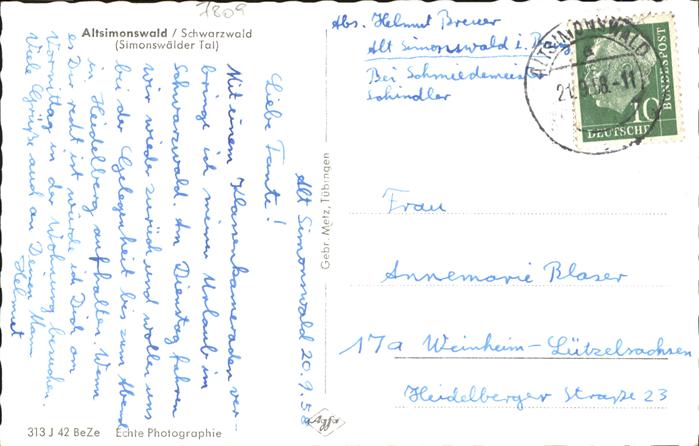 1809
Altsimonswald / Schwarzwald
(Simonswälder Tal)
Alt Simonswald 20.9.58
Liebe Tante!
Mit einem Klassenkameraden ver-
bringe ich meinen Urlaub im
Schwarzwald. Am Dienstag fahren
wir wieder zurück und wollen uns
bei der Gelegenheit bis zum Abend
in Heidelberg aufhalten. Wenn
es Dir recht ist würde ich Dich am
Vormittag in der Wohnung besuchen.
Viele Grüße auch an Deinen Mann
Helmut
313 J 42 BeZe Echte Photographie
Gebr. Metz, Tübingen
Agfa
Abs. Helmut Breuer
Alt Simonswald i. Brsg.
Bei Schmiedemeis
Schindler
ALTSIMONSWALD
a
21.9.58.-11
10
DEUTSCHE
BUNDESPOST
Frau
Annemarie Blaser
17a Weinheim-Lützelsachsen
Heidelberger Straße 23